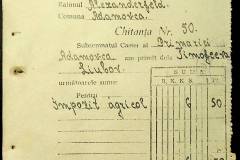 Raionul Alexanderfeld.
Comuna Adamovca.
Chitanța Nr. 50.
Subsemnatul Casier al Primăriei
Adamovca am primit dela Timofeevna
Liubov
următoarele sume:
SUMA
R.K.K.S.
Pentru
Impozit agricol 6 50
6 50